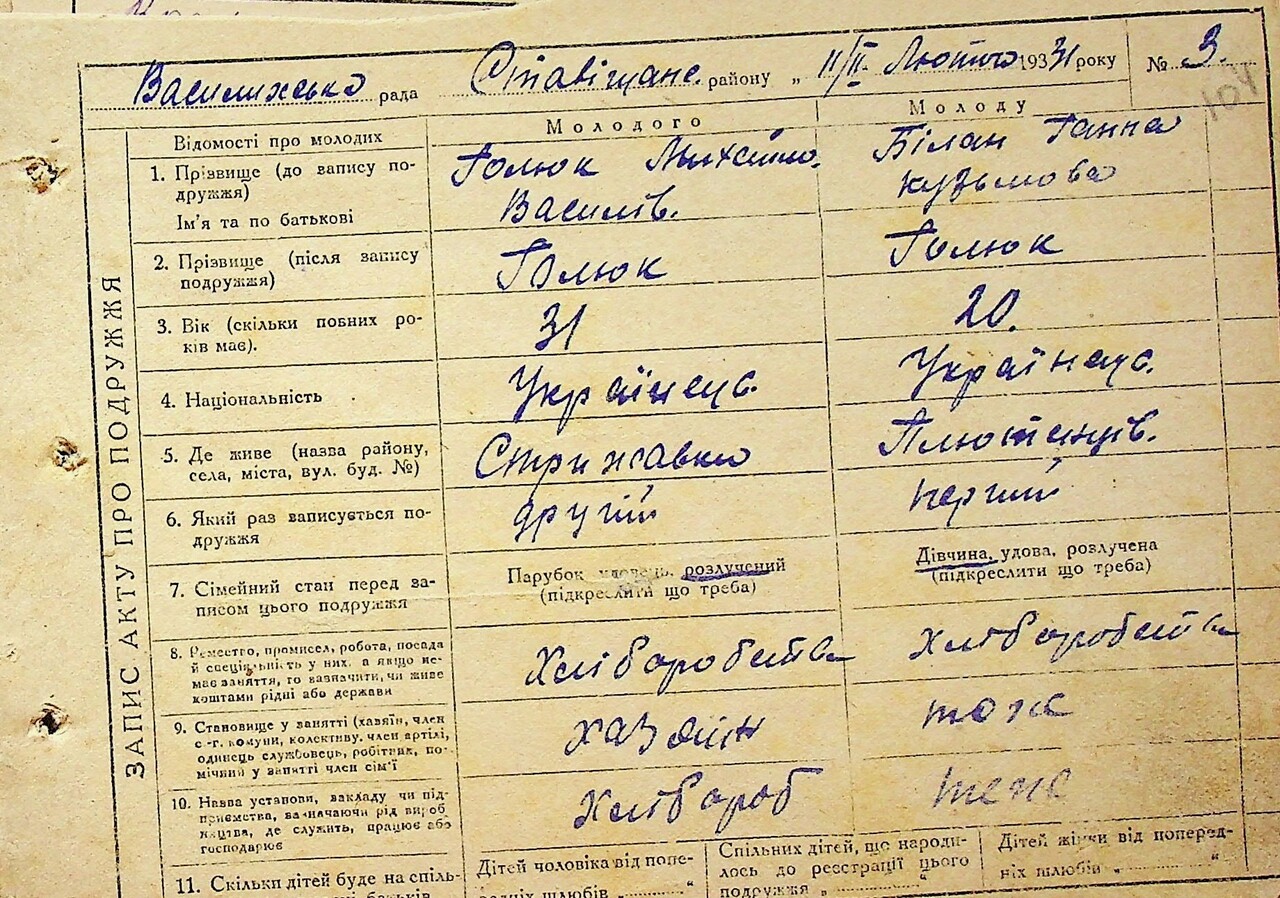 Василихсько рада Ставищанс. району „ 11/II. Лютого 1931 року № 3.
104
ЗАПИС АКТУ ПРО ПОДРУЖЖЯ
Відомості про молодих
Молодого
Молоду
1. Прізвище (до запису по-
дружжя)
Ім'я та по батькові
Голюк Михайло.
Василів.
Білан Ганна
Кузьмова
2. Прізвище (після запису
подружжя)
Голюк
Голюк
3. Вік (скільки повних ро-
ків має).
31
20.
4. Національність
Українець.
Українець.
5. Де живе (назва району,
села, міста, вул. буд. №)
Стрижавка
6. Який раз записується по-
дружжя
другий
перший
7. Сімейний стан перед за-
писом цього подружжя
Парубок удовець, розлучений
(підкреслити що треба)
Дівчина, удова, розлучена
(підкреслити що треба)
8. Ремество, промисел, робота, посада
й спеціяльність у них, а якщо не-
має заняття, то зазначити, чи живе
коштами рідні або держави
Хліборобств
Хліборобств
9. Становище у занятті (хазяїн, член
с.-г. комуни, колективу, член артілі,
одинець службовець, робітник, по-
мічний у занятті член сім'ї
хазяїн
тоже
10. Назва установи, закладу чи під-
приємства, зазначаючи рід вироб
ництва, де служить, працює або
господарює
Хлібороб
тоже
11. Скільки дітей буде на спіль-
Дітей чоловіка від попе-
редніх шлюбів „ “
Спільних дітей, що народи-
лось до реєстрації цього
подружжя „ “
Дітей жінки від поперед-
ніх шлюбів „ “